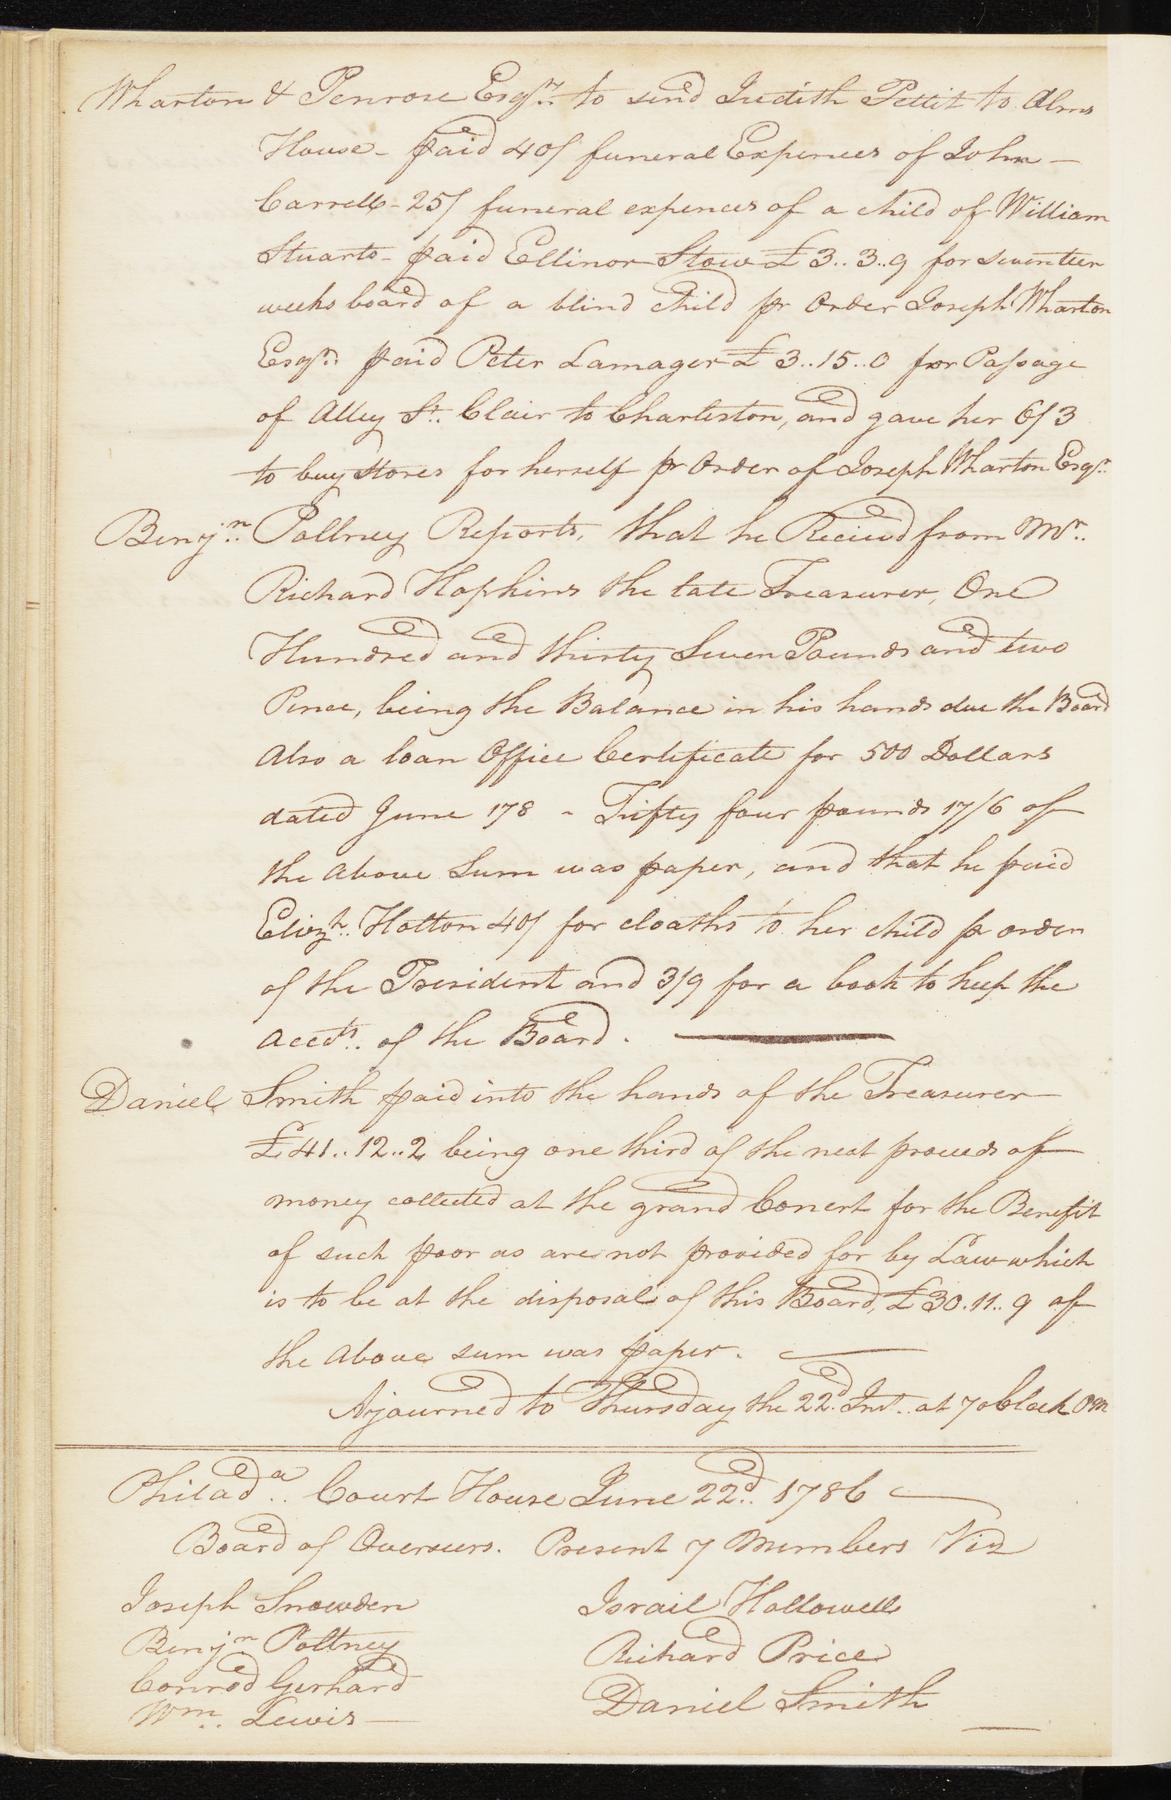 Wharton & Penrose Esqrs. to send Judith Pettit to Alms
House - paid 40/ funeral Expences of John
Carrell - 25/ funeral expences of a child of William
Stuarts - paid Ellinor Stow £3..3..9 for seventeen
weeks board of a blind Child pr Order Joseph Wharton
Esqr. paid Peter Lamager £3..15..0 for Passage
of Alley St. Clair to Charleston, and gave her 6/3
to buy Stores for herself pr Order of Joseph Wharton Esqr.
Benjn. Poltney Reports, that he Recievd from Mr.
Richard Hopkins the late Treasurer, One
Hundred and thirty Seven Pounds and two
Pence, being the Balance in his hands due the Board
Also a loan Office Certificate for 500 Dollars
dated June 178 - Fifty four pounds 17/6 of
the Above Sum was paper, and that he paid
Elizh. Hotton 40/ for cloaths to her child pr order
of the President and 3/9 for a book to keep the
Accts. of the Board.
Daniel Smith paid into the hands of the Treasurer
£41..12..2 being one third of the neat proceeds of
money collected at the grand Concert for the Benefit
of such poor as are not provided for by Law which
is to be at the disposal of this Board, £30.11..9 of
the Above sum was paper.
Ajourned to Thursday the 22d. Inst. at 7 oClock PM
Philada. Court House June 22d. 1786
Board of Overseers. Present 7 Members Viz
Joseph Snowden Israil Hallowell
Benjn Poltney Richard Price
Conrod Gerhard Daniel Smith
Wm. Lewis